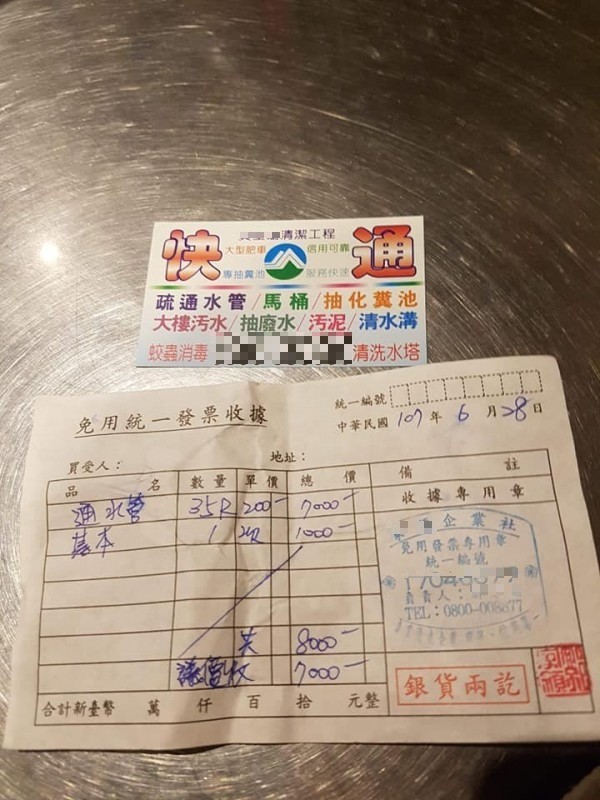 清潔工程
快通
大型肥車 信用可靠
專抽糞池 服務快速
疏通水管/馬桶/抽化糞池
大樓汚水/抽廢水/汚泥/清水溝
蚊蟲消毒 清洗水塔
免用統一發票收據
統一編號
中華民國 107 年 6 月 28 日
買受人： 地址：
品名 數量 單價 總價 備註
收據專用章
通水管 35R 200- 7000-
基本 1 次 1000-
企業社
免用發票專用章
統一編號
負責人：
TEL：0800-008877
共 8000-
議價收 7000-
銀貨兩訖
合計新臺幣 萬 仟 百 拾 元整